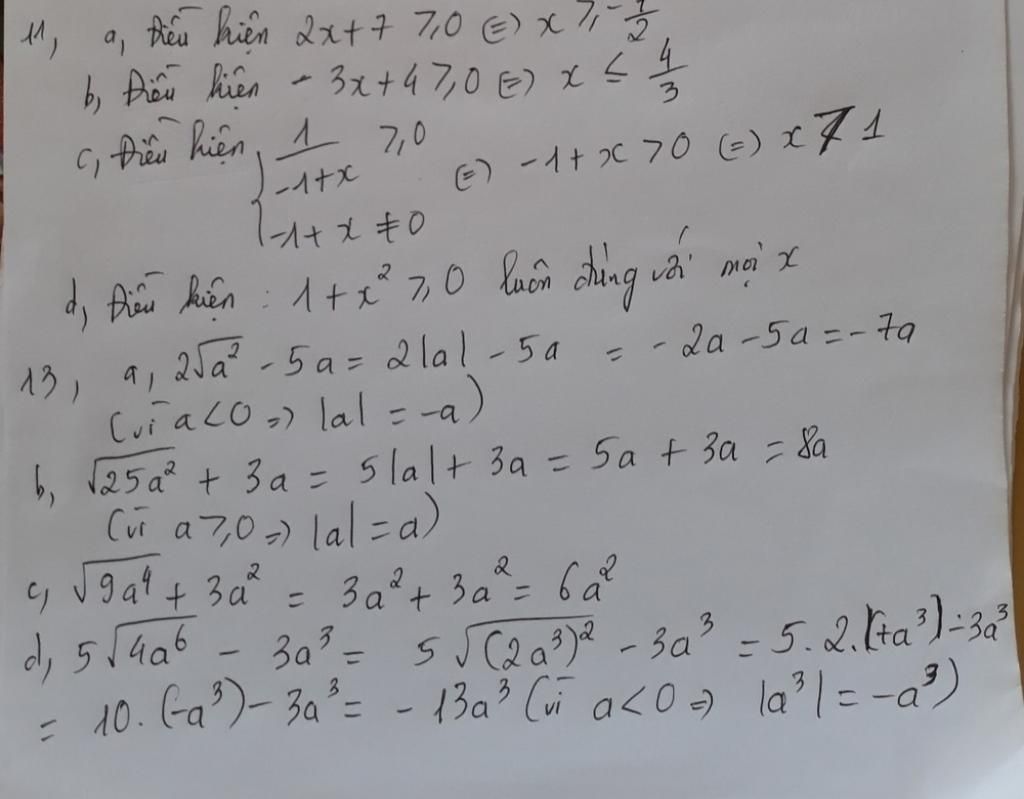 11, a, Điều kiện 2x+7 ≥ 0 (=) x ≥ -7/2
b, Điều kiện - 3x+4 ≥ 0 (=) x ≤ 4/3
c, Điều kiện { 1/(-1+x) ≥ 0 ; -1+x ≠ 0 (=) -1+x > 0 (=) x > 1
d, Điều kiện : 1+x² ≥ 0 luôn đúng với mọi x
13, a, 2√a² - 5a = 2|a| - 5a = - 2a - 5a = - 7a
(vì a<0 => |a| = -a)
b, √25a² + 3a = 5|a| + 3a = 5a + 3a = 8a
(vì a ≥ 0 => |a| = a)
c, √9a⁴ + 3a² = 3a² + 3a² = 6a²
d, 5√4a⁶ - 3a³ = 5√(2a³)² - 3a³ = 5. 2. |a³| - 3a³
= 10. (-a³) - 3a³ = - 13a³ (vì a<0 => |a³| = -a³)